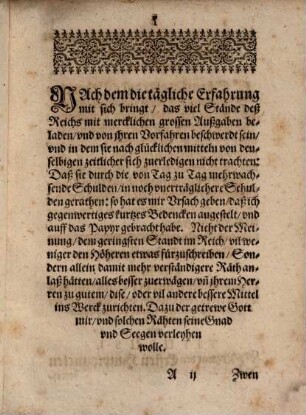 NAch dem die tägliche Erfahrung
mit sich bringt / das viel Stände deß
Reichs mit mercklichen grossen Außgaben be-
laden / vnd von jhren Vorfahren beschwerdt sein /
vnd in dem sie nach glücklichen mitteln von den-
selbigen zeitlicher sich zuerledigen nicht trachten:
Daß sie durch die von Tag zu Tag mehr wach-
sende Schulden / in noch vnerträglichere Schul-
den gerathen: so hat es mir Vrsach geben / daß ich
gegenwertiges kurtzes Bedencken angestelt / vnd
auff das Papyr gebracht habe. Nicht der Mei-
nung / dem geringsten Standt im Reich / vil we-
niger den Höheren etwas fürzuschreiben / Son-
dern allein damit mehr verständigere Räth an-
laß hätten / alles besser zuerwägen / vñ jhrem Her-
ren zu gutem / dise / oder vil andere bessere Mittel
ins Werck zurichten. Dazu der getrewe Gott
mir / vnd solchen Rähten seine Gnad
vnd Seegen verleyhen
wolle.
A ij Zwen